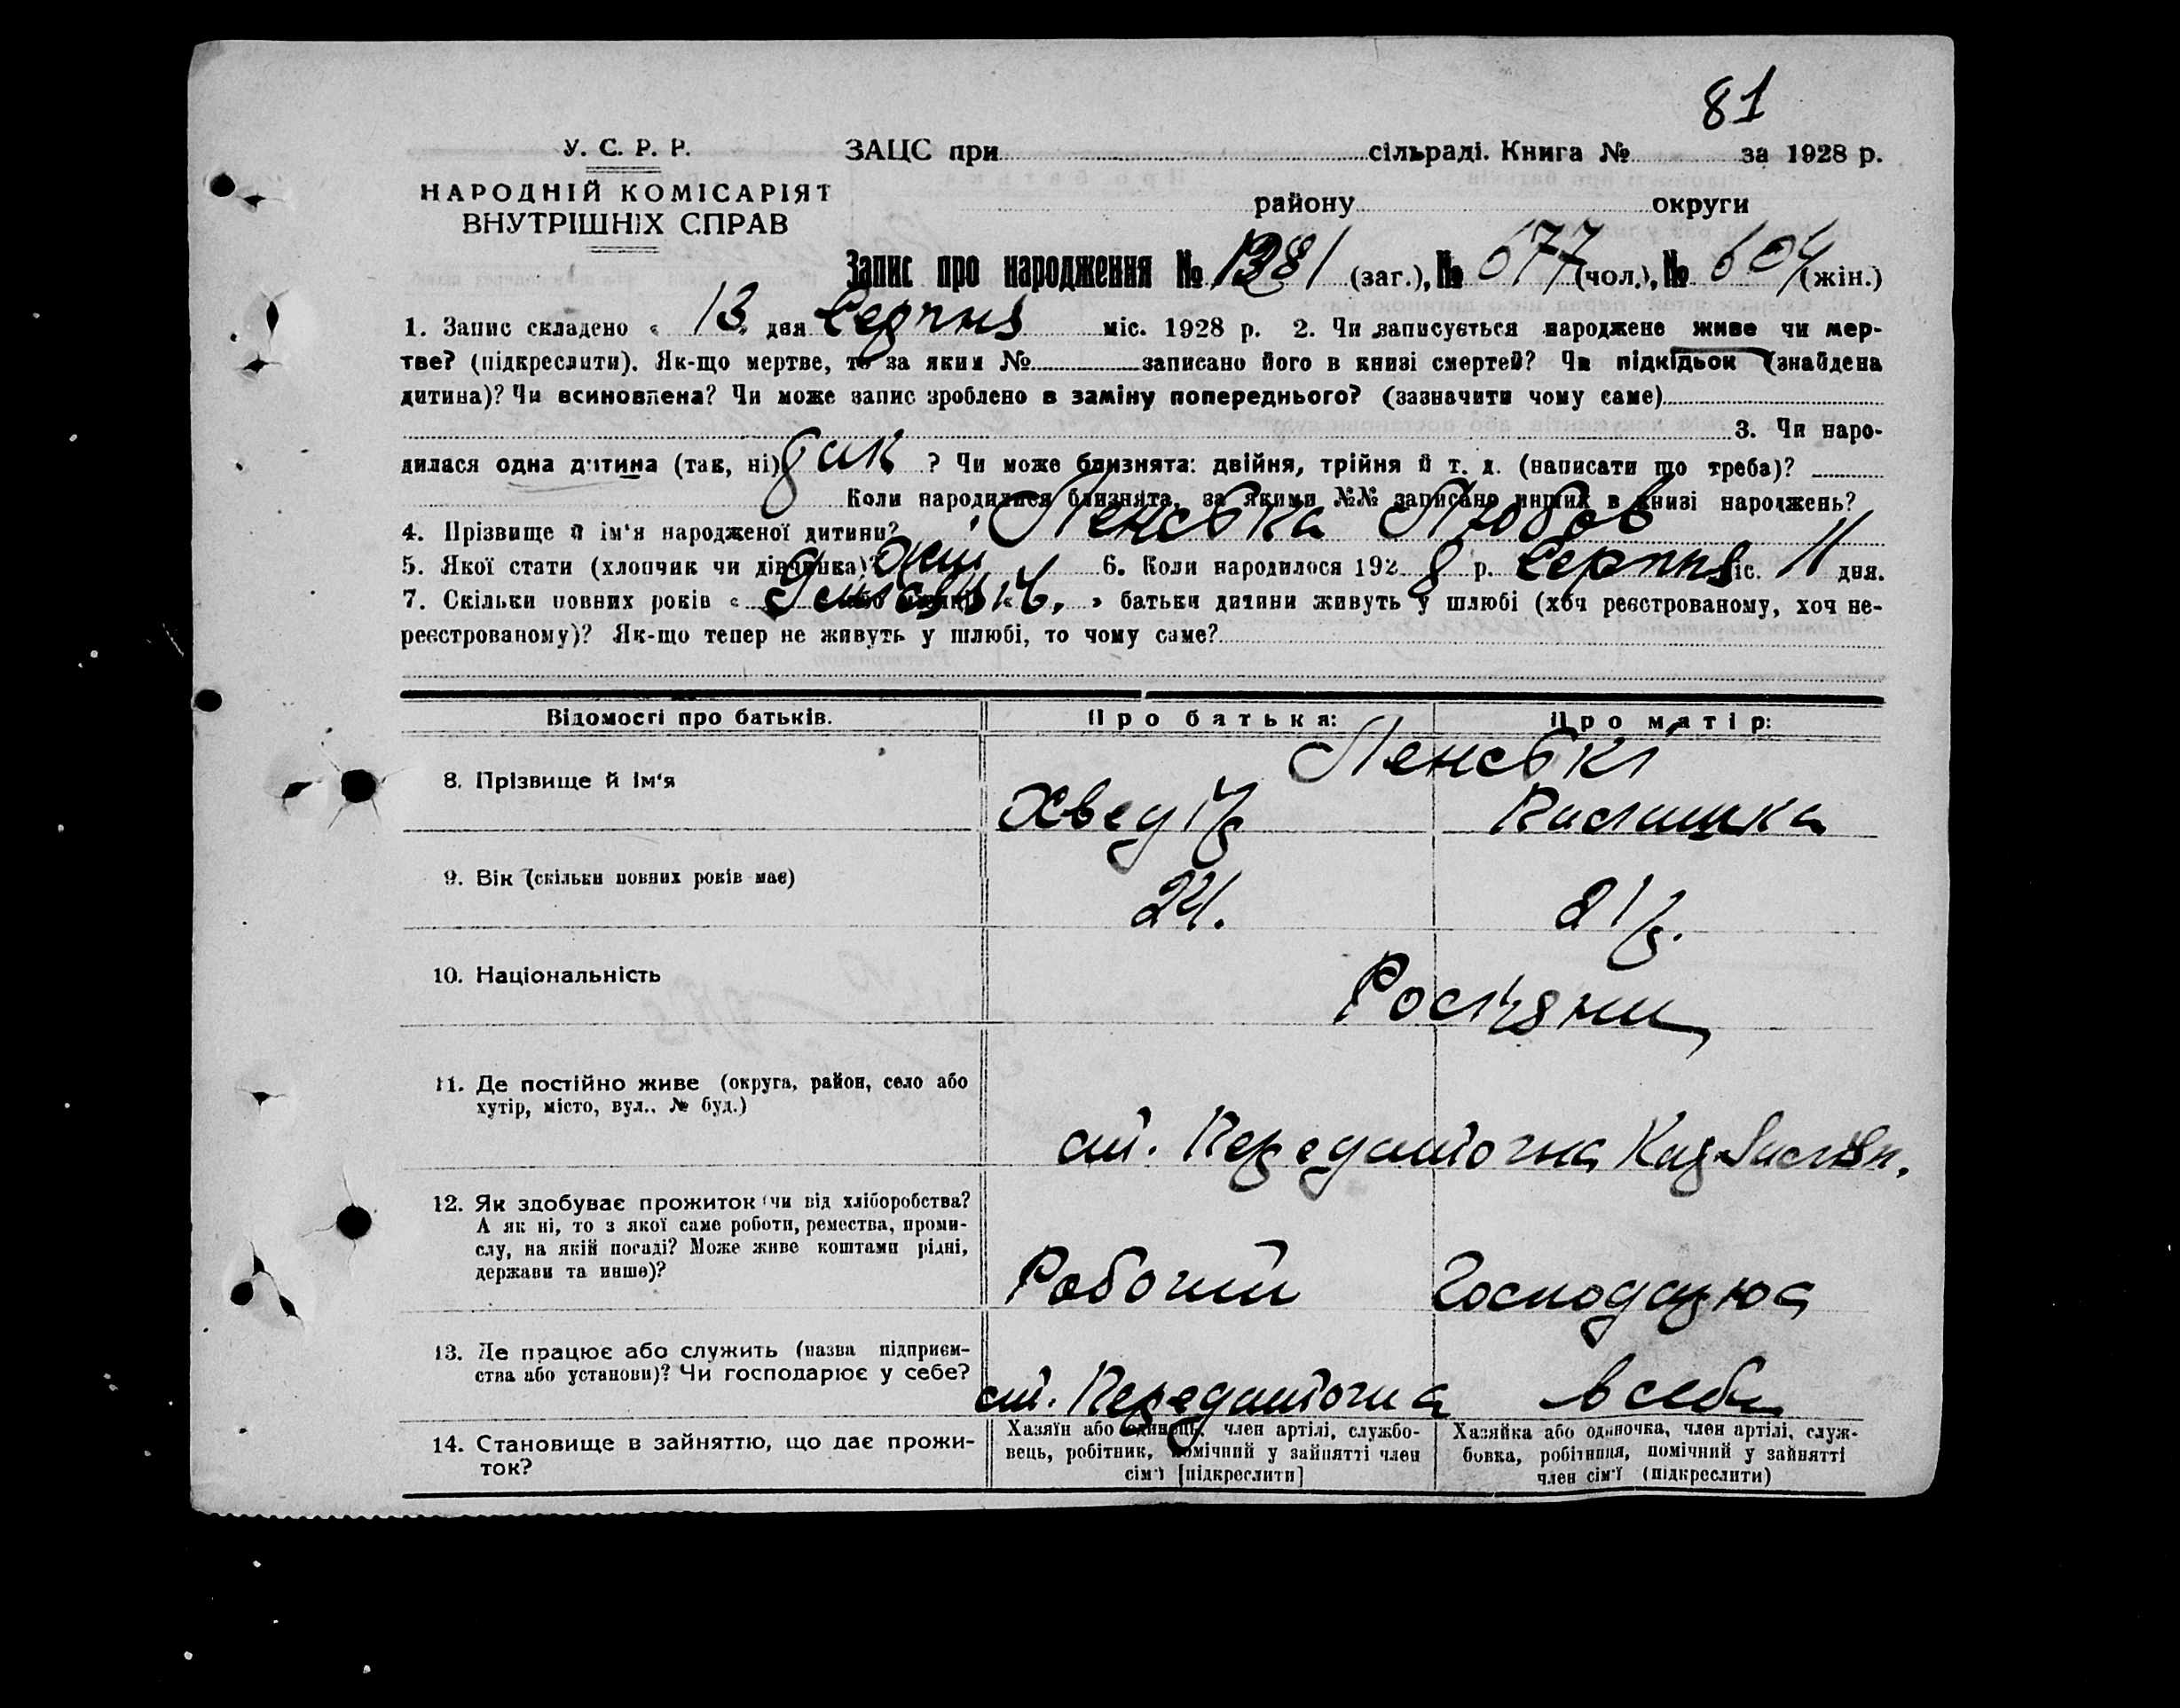 81
У. С. Р. Р.
ЗАЦС при сільраді. Книга № за 1928 р.
НАРОДНІЙ КОМІСАРІЯТ
ВНУТРІШНІХ СПРАВ
району округи
Запис про народження № 1281 (заг.), № 677 (чол.), № 604 (жін.)
1. Запис складено « 13 » дня Серпня міс. 1928 р. 2. Чи записується народжене живе чи мер-
тве? (підкреслити). Як-що мертве, то за яким № записано його в книзі смертей? Чи підкідьок (знайдена
дитина)? Чи всиновлена? Чи може запис зроблено в заміну попереднього? (зазначити чому саме)
3. Чи наро-
дилася одна дитина (так, ні) так ? Чи може близнята: двійня, трійня й т. д. (написати що треба)?
Коли народилися близнята, за якими №№ записано инших в книзі народжень?
4. Прізвище й ім'я народженої дитини? Ленська Любов
5. Якої стати (хлопчик чи дівчинка)? жін 6. Коли народилося 1928 р. Серпня міс. 11 дня.
7. Скільки повних років « » батьки дитини живуть у шлюбі (хоч реєстрованому, хоч не-
реєстрованому)? Як-що тепер не живуть у шлюбі, то чому саме?
Відомості про батьків. Про батька: Про матір:
Ленські
8. Прізвище й ім'я Хведір Килишка
9. Вік (скільки повних років має) 24. 21р.
10. Національність Росіяни
11. Де постійно живе (округа, район, село або
хутір, місто, вул., № буд.)
ст. Передаточна
12. Як здобуває прожиток (чи від хліборобства?
А як ні, то з якої саме роботи, ремества, проми-
слу, на якій посаді? Може живе коштами рідні,
держави та инше)?
Робочий Господарюа
13. Де працює або служить (назва підприєм-
ства або установи)? Чи господарює у себе?
ст. Передаточна в себе
14. Становище в зайняттю, що дає прожи-
ток?
Хазяїн або одинець, член артілі, службо-
вець, робітник, помічний у зайнятті член
сім'ї [підкреслити]
Хазяйка або одиночка, член артілі, служ-
бовка, робітниця, помічний у зайнятті
член сім'ї (підкреслити)